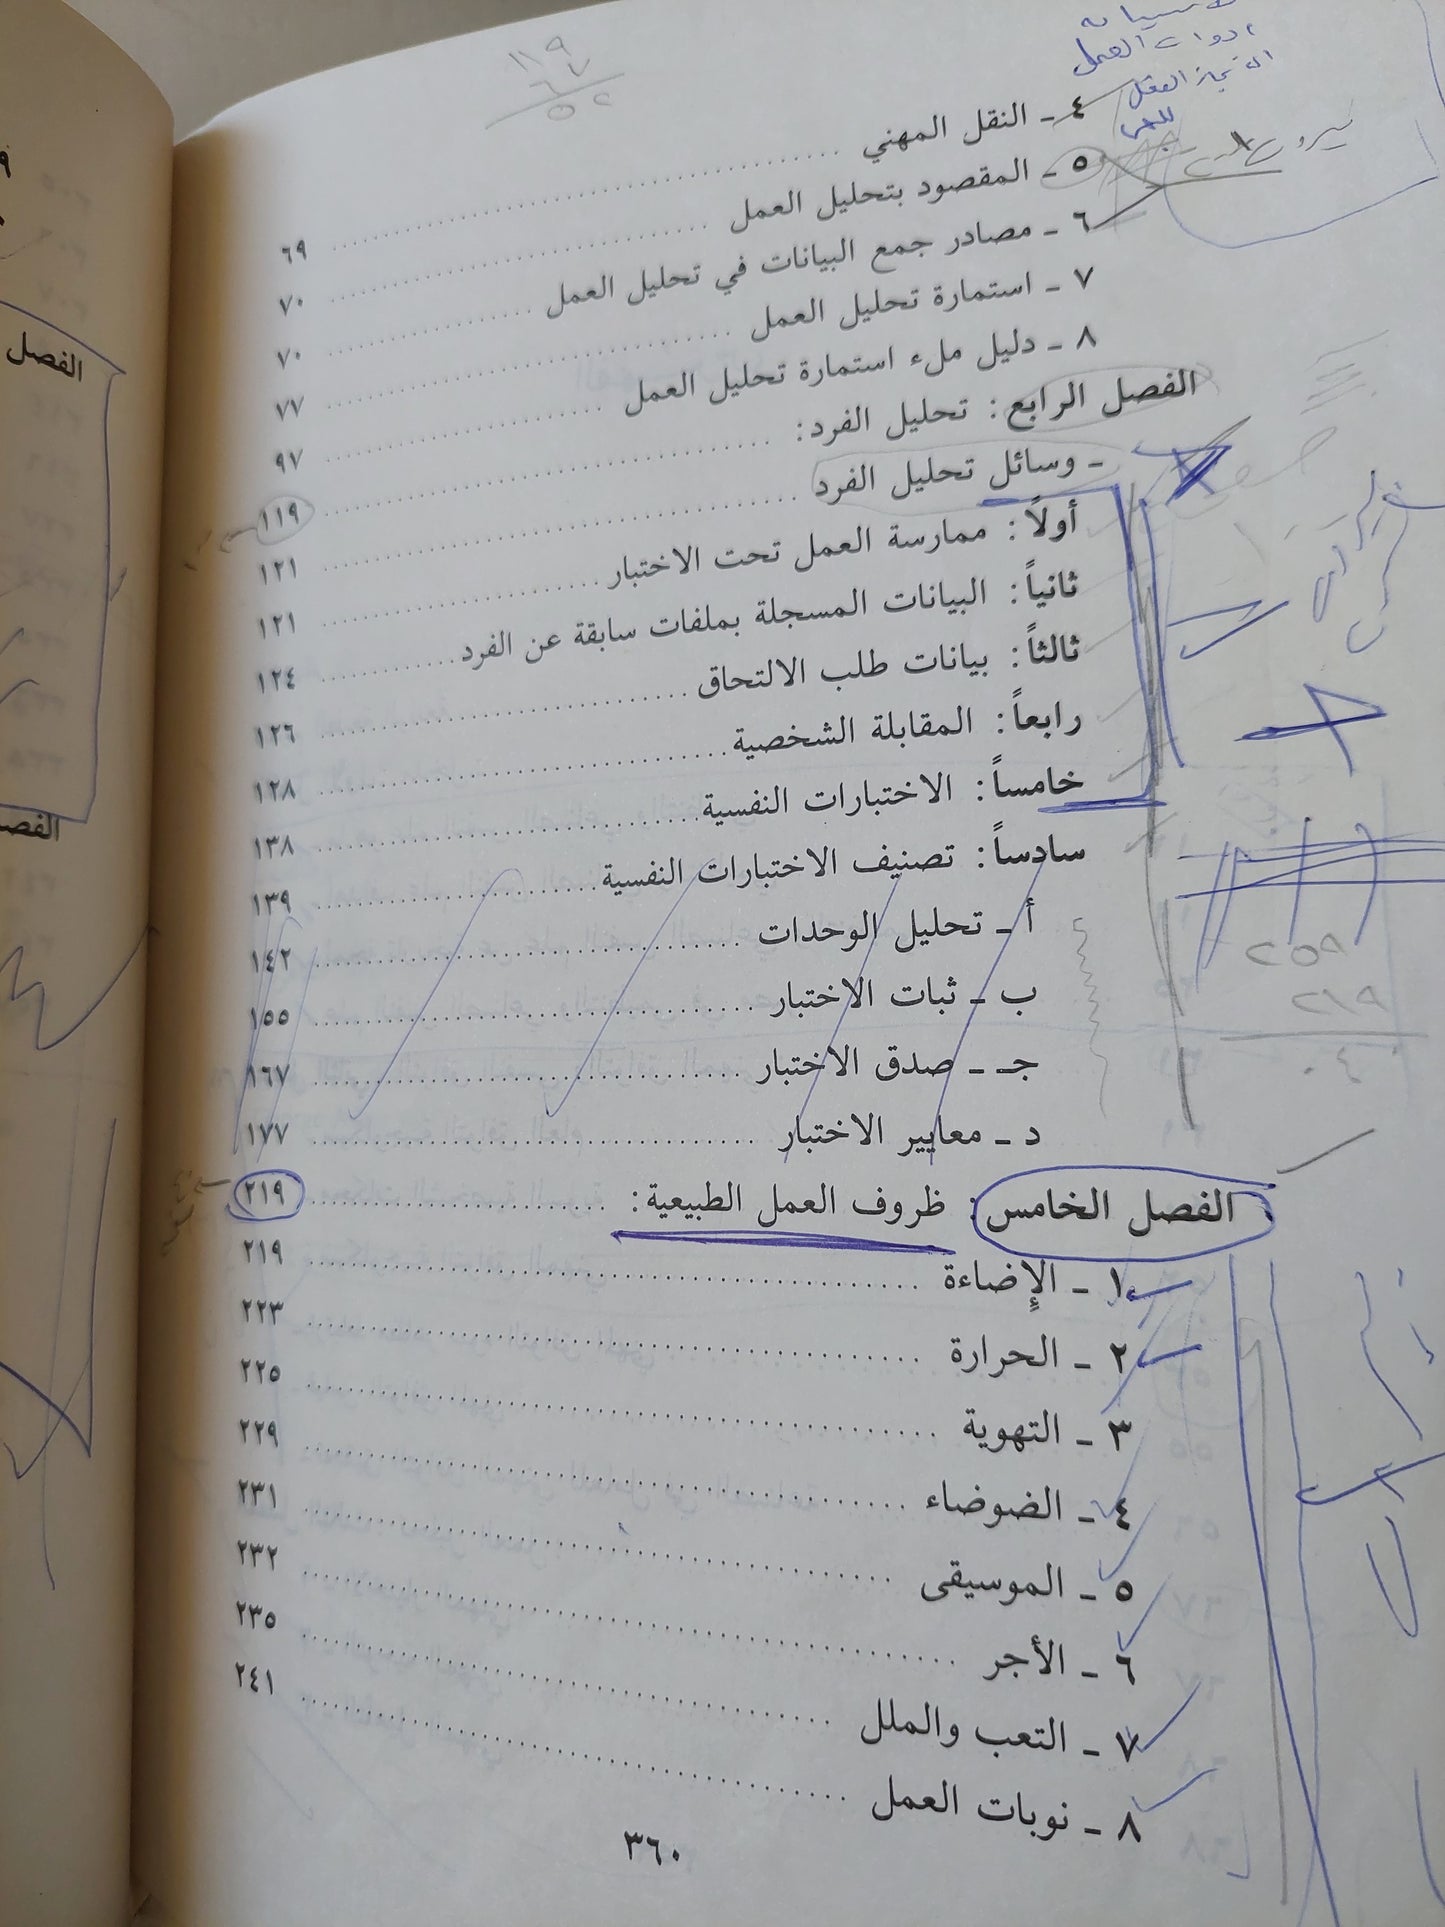 ١١٩
ادوات العمل
٤ ـ النقل المهني ........ ٦٩
٥ ـ المقصود بتحليل العمل ........ ٧٠
٦ ـ مصادر جمع البيانات في تحليل العمل ........ ٧٠
٧ ـ استمارة تحليل العمل ........ ٧٧
٨ ـ دليل ملء استمارة تحليل العمل ........ ٩٧
الفصل الرابع: تحليل الفرد: ........ ١١٩
ـ وسائل تحليل الفرد ........ ١٢١
أولاً: ممارسة العمل تحت الاختبار ........ ١٢١
ثانياً: البيانات المسجلة بملفات سابقة عن الفرد ........ ١٢٤
ثالثاً: بيانات طلب الالتحاق ........ ١٢٦
رابعاً: المقابلة الشخصية ........ ١٢٨
خامساً: الاختبارات النفسية ........ ١٣٨
سادساً: تصنيف الاختبارات النفسية ........ ١٣٩
أ ـ تحليل الوحدات ........ ١٤٢
ب ـ ثبات الاختبار ........ ١٥٥
جـ ـ صدق الاختبار ........ ١٦٧
د ـ معايير الاختبار ........ ١٧٧
الفصل الخامس: ظروف العمل الطبيعية: ........ ٢١٩
١ ـ الإضاءة ........ ٢١٩
٢ ـ الحرارة ........ ٢٢٣
٣ ـ التهوية ........ ٢٢٥
٤ ـ الضوضاء ........ ٢٢٩
٥ ـ الموسيقى ........ ٢٣١
٦ ـ الأجر ........ ٢٣٢
٧ ـ التعب والملل ........ ٢٣٥
٨ ـ نوبات العمل ........ ٢٤١
٣٦٠
٢٥٩
٢١٩
٠٤٠
الفصل